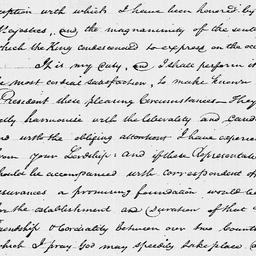 eption with which I have been honored by
Majesties, and the magnanimity of the sente
which the King condescended to express on the occ
It is my Duty, and I shall perform it
e most cordial satisfaction, to make known
President these pleasing Circumstances — They
tly harmonise with the liberality and Cand
nd with the obliging attentions I have experien
from your Lordship; and if these Representatio
should be accompanied with correspondent
ssurances a promising foundation would be
for the establishment and duration of that
friendship & Cordiality between our two Countr
which I pray God may speedily take place a